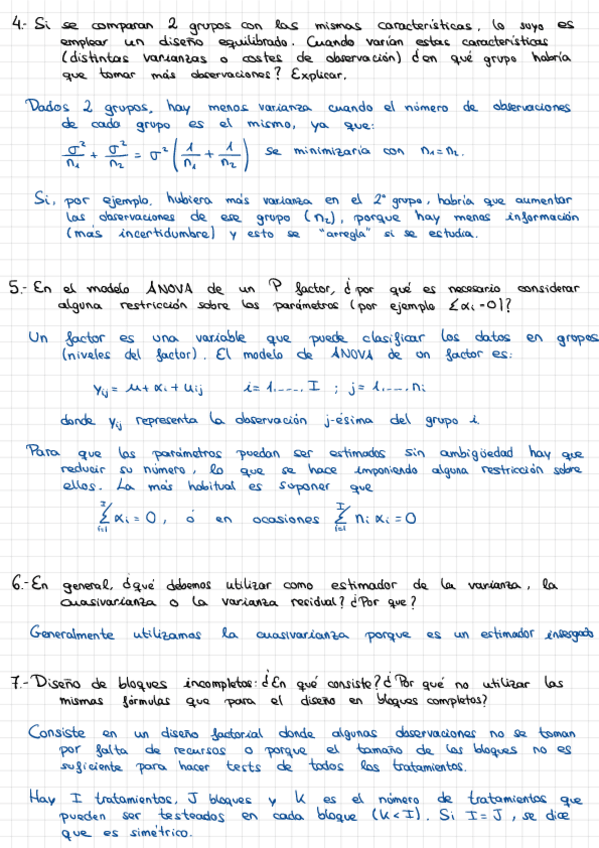 4.- Si se comparan 2 grupos con las mismas características, lo suyo es
emplear un diseño equilibrado. Cuando varían estas características
(distintas varianzas o costes de observación) ¿en qué grupo habría
que tomar más observaciones? Explicar.
Dados 2 grupos, hay menos varianza cuando el número de observaciones
de cada grupo es el mismo, ya que:
σ²/n₁ + σ²/n₂ = σ² (1/n₁ + 1/n₂) se minimizaría con n₁=n₂.
Si, por ejemplo, hubiera más varianza en el 2º grupo, habría que aumentar
las observaciones de ese grupo (n₂), porque hay menos información
(más incertidumbre) y esto se "arregla" si se estudia.
5.- En el modelo ANOVA de un P factor, ¿por qué es necesario considerar
alguna restricción sobre los parámetros (por ejemplo Σαᵢ=0)?
Un factor es una variable que puede clasificar los datos en grupos
(niveles del factor). El modelo de ANOVA de un factor es:
yᵢⱼ = μ + αᵢ + uᵢⱼ i = 1,...., I ; j = 1,...., nᵢ
donde yᵢⱼ representa la observación j-ésima del grupo i.
Para que los parámetros puedan ser estimados sin ambigüedad hay que
reducir su número, lo que se hace imponiendo alguna restricción sobre
ellos. La más habitual es suponer que
Σᵢ₌₁ᴵ αᵢ = 0, ó en ocasiones Σᵢ₌₁ᴵ nᵢ αᵢ = 0
6.- En general, ¿qué debemos utilizar como estimador de la varianza, la
cuasivarianza o la varianza residual? ¿Por que?
Generalmente utilizamos la cuasivarianza porque es un estimador insesgado
7.- Diseño de bloques incompletos: ¿En qué consiste? ¿Por qué no utilizar las
mismas fórmulas que para el diseño en bloques completos?
Consiste en un diseño factorial donde algunas observaciones no se toman
por falta de recursos o porque el tamaño de los bloques no es
suficiente para hacer tests de todos los tratamientos.
Hay I tratamientos, J bloques y K es el número de tratamientos que
pueden ser testeados en cada bloque (K<I). Si I=J, se dice
que es simétrico.